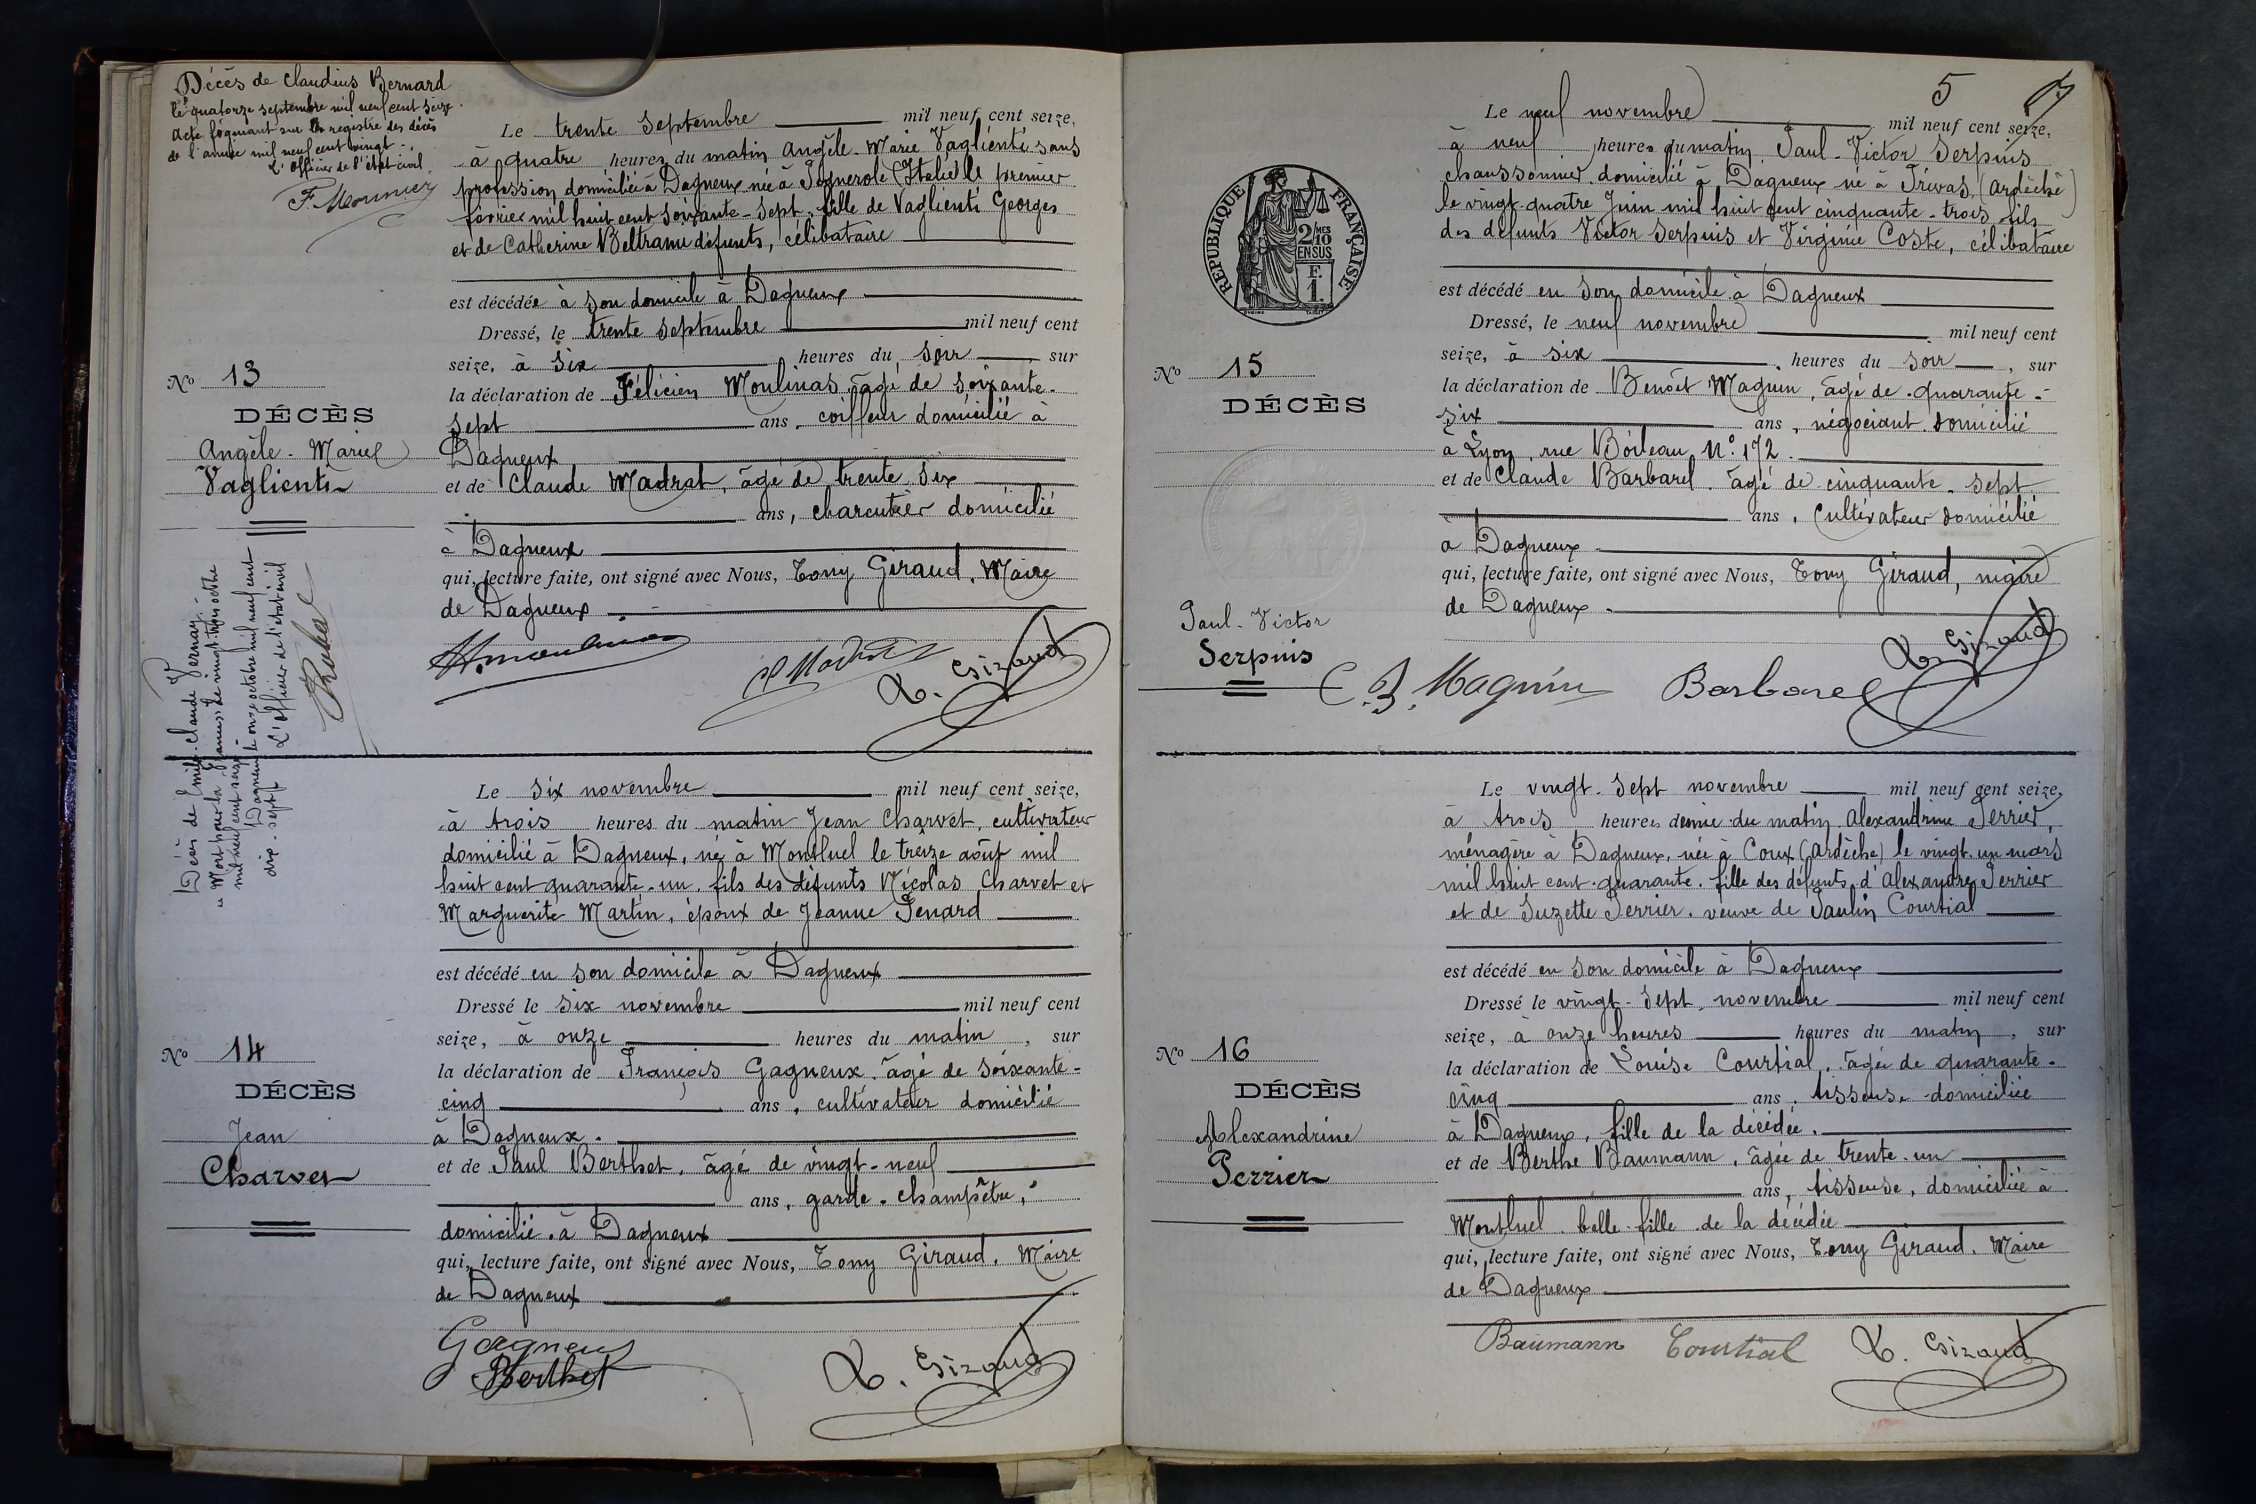 Décès de Claudius Bernard
le quatorze septembre mil neuf cent seize.
Acte figurant sur le registre des décès
de l'année mil neuf cent vingt -
L'Officier de l'état civil
F. Meunier
Le trente Septembre mil neuf cent seize,
à quatre heures du matin Angèle-Marie Vaglienti sans
profession domiciliée à Dagneux née à Pignerole (Italie) le premier
février mil huit cent soixante-sept, fille de Vaglienti Georges
et de Catherine Beltrami défunts, célibataire
est décédée à son domicile à Dagneux
Dressé, le trente septembre mil neuf cent
seize, à six heures du soir, sur
la déclaration de Félicien Moulinas, âgé de soixante-
sept ans, coiffeur domicilié à
Dagneux
et de Claude Madrat, âgé de trente six
ans, charcutier domicilié
à Dagneux
qui, lecture faite, ont signé avec Nous, Tony Giraud, Maire
de Dagneux
N° 13
DÉCÈS
Angèle-Marie
Vaglienti
Giraud
Décès de Emile Claude Vernay
"Mort pour la France" le vingt trois octobre
mil neuf cent seize -
Dagneux le onze octobre mil neuf cent
dix-sept
L'officier de l'état civil
Le six novembre mil neuf cent seize,
à trois heures du matin Jean Charvet, cultivateur
domicilié à Dagneux, né à Montluel le treize août mil
huit cent quarante-un, fils des défunts Nicolas Charvet et
Marguerite Martin, époux de Jeanne Penard
est décédé en son domicile à Dagneux
Dressé le six novembre mil neuf cent
seize, à onze heures du matin, sur
la déclaration de François Gagneux, âgé de soixante-
cinq ans, cultivateur domicilié
à Dagneux.
et de Paul Berthet, âgé de vingt-neuf
ans, garde-champêtre,
domicilié à Dagneux
qui, lecture faite, ont signé avec Nous, Tony Giraud, Maire
de Dagneux
N° 14
DÉCÈS
Jean
Charvet
Gagneux
Berthet
Giraud
5
Le neuf novembre mil neuf cent seize,
à neuf heures du matin, Paul-Victor Serpuis
chaussonnier, domicilié à Dagneux né à Privas, (Ardèche)
le vingt-quatre Juin mil huit cent cinquante-trois fils
des défunts Victor Serpuis et Virginie Coste, célibataire
est décédé en son domicile à Dagneux
Dressé, le neuf novembre mil neuf cent
seize, à six heures du soir, sur
la déclaration de Benoît Magnin, âgé de quarante-
six ans, négociant domicilié
à Lyon, rue Boileau N° 172.
et de Claude Barbarel, âgé de cinquante-sept
ans, cultivateur domicilié
à Dagneux
qui, lecture faite, ont signé avec Nous, Tony Giraud, maire
de Dagneux.
RÉPUBLIQUE FRANÇAISE
2/10 MES
EN SUS
F.
1.
N° 15
DÉCÈS
Paul-Victor
Serpuis
C. B. Magnin
Barbarel
Giraud
Le vingt-sept novembre mil neuf cent seize,
à trois heures demie du matin Alexandrine Perrier,
ménagère à Dagneux, née à Coux (Ardèche) le vingt-un mars
mil huit cent quarante, fille des défunts d'Alexandre Perrier
et de Suzette Perrier, veuve de Paulin Courtial
est décédé en son domicile à Dagneux
Dressé le vingt-sept novembre mil neuf cent
seize, à onze heures heures du matin, sur
la déclaration de Louise Courtial, âgée de quarante-
cinq ans, tisseuse domiciliée
à Dagneux, fille de la décédée.
et de Berthe Baumann, âgée de trente-un
ans, tisseuse, domiciliée à
Montluel belle-fille de la décédée
qui, lecture faite, ont signé avec Nous, Tony Giraud, Maire
de Dagneux
N° 16
DÉCÈS
Alexandrine
Perrier
Baumann
Courtial
Giraud